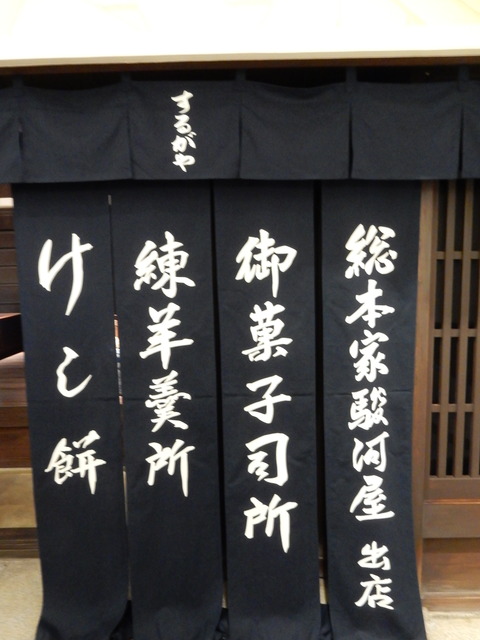 するがや
総本家駿河屋 出店
御菓子司所
練羊羹所
けし餅